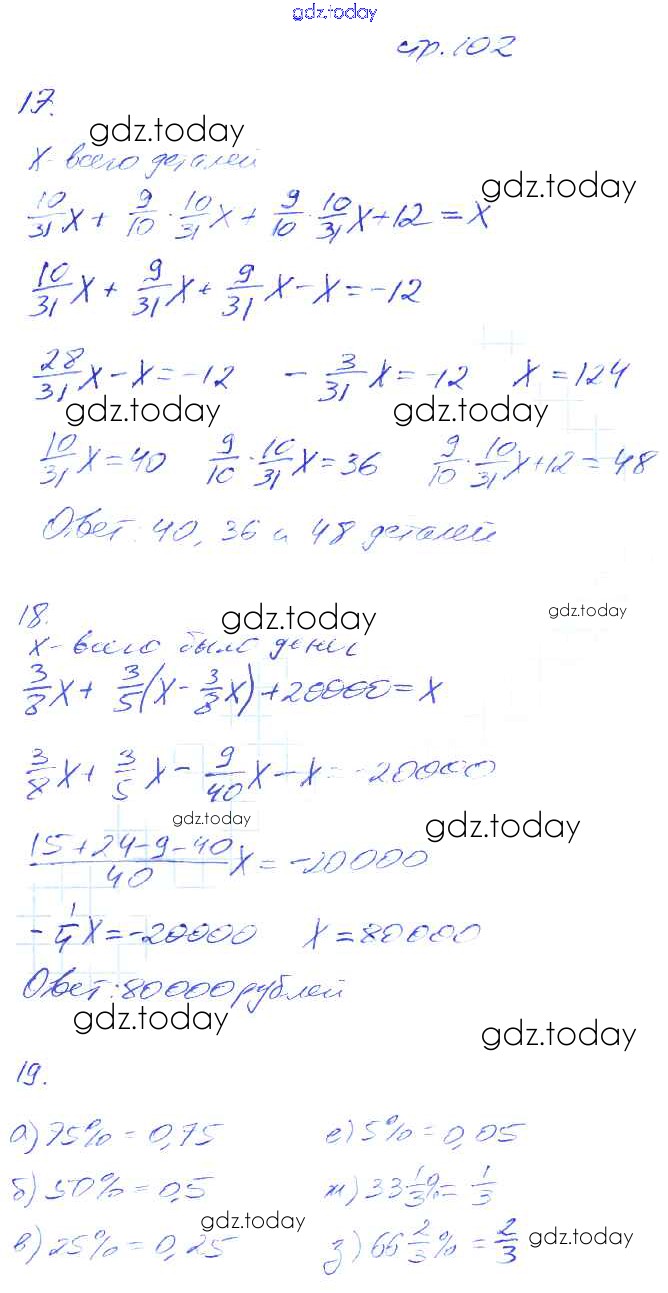 gdz.today
стр. 102
17.
gdz.today
x - всего деталей
gdz.today
10/31 x + 9/10 · 10/31 x + 9/10 · 10/31 x + 12 = x
10/31 x + 9/31 x + 9/31 x - x = -12
28/31 x - x = -12 - 3/31 x = -12 x = 124
gdz.today gdz.today
10/31 x = 40 9/10 · 10/31 x = 36 9/10 · 10/31 x + 12 = 48
Ответ: 40, 36 и 48 деталей
18.
gdz.today gdz.today
x - всего было денег
3/8 x + 3/5 (x - 3/8 x) + 20000 = x
3/8 x + 3/5 x - 9/40 x - x = -20000
gdz.today gdz.today
(15+24-9-40)/40 x = -20000
- 1/4 x = -20000 x = 80000
Ответ: 80000 рублей
gdz.today gdz.today
19.
а) 75% = 0,75 е) 5% = 0,05
б) 50% = 0,5 ж) 33 1/3 % = 1/3
gdz.today gdz.today
в) 25% = 0,25 з) 66 2/3 % = 2/3